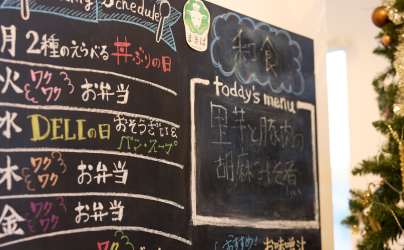 Schedule♪
月 2種のえらべる 丼ぶりの日
火 ワクワク お弁当
水 DELIの日 おそうざい&
パン・スープ
木 ワクワク お弁当
金 ワクワク お弁当
和食
today's menu
里芋と豚肉の
胡麻汁煮
おすすめ! お味噌汁